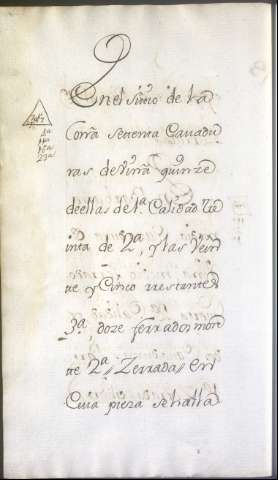 En el sittio de la
Corra settenta Cavadu
ras de viña quinze
de ellas de 1ª Calidad tre
inta de 2ª, y las Vein
te y Cinco rrestantes
3ª doze ferrados monte
de 2ª Zerrada, en
Cuia pieza se halla